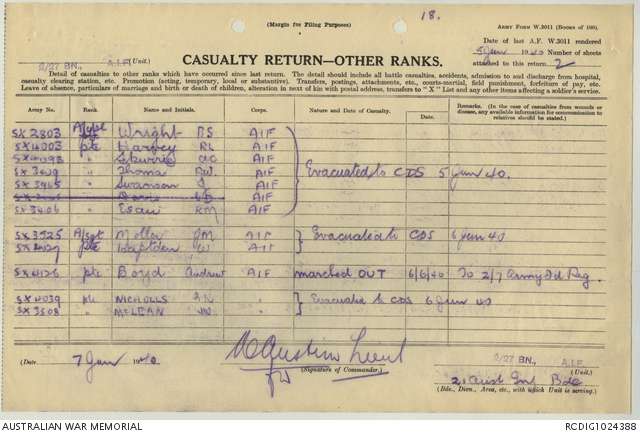 (Margin for Filing Purposes)
18.
ARMY FORM W.3011 (BOOKS OF 100).
Date of last A.F. W.3011 rendered
5 Jun 1940 Number of sheets
attached to this return 2
2/27 BN., A.I.F (Unit.)
CASUALTY RETURN—OTHER RANKS.
Detail of casualties to other ranks which have occurred since last return. The detail should include all battle casualties, accidents, admission to and discharge from hospital,
casualty clearing station, etc. Promotion (acting, temporary, local or substantive). Transfers, postings, attachments, etc., courts-martial, field punishment, forfeiture of pay, etc.
Leave of absence, particulars of marriage and birth or death of children, alteration in next of kin with postal address, transfers to "X" List and any other items affecting a soldier's service.
Army No. Rank Name and Initials. Corps. Nature and Date of Casualty. Date. Remarks. (In the case of casualties from wounds or disease, any available information for commemoration to relatives should be stated.)
SX2803 Wright AIF
SX4003 pte Harvey RL AIF
" AIF
" Thomas AIF Evacuated to CDS 5 Jun 40.
SX3965 " Swanson J AIF
" AIF
SX3406 " Esau RM AIF
SX3925 A/Sgt AIF Evacuated to CDS 6 Jun 40
pte AIF
SX4126 pte Boyd Andrew AIF marched OUT 6/6/40 To 2/7 Army Fd Reg.
SX4039 pte NICHOLLS AN " Evacuated to CDS 6 Jun 40
SX3508 " McLEAN "
(Date 7 Jun 1940 Lieut
(Signature of Commander.)
2/27 BN., A.I.F.
(Unit.)
21 Aust Inf Bde
(Bde., Divn., Area, etc., with which Unit is serving.)
AUSTRALIAN WAR MEMORIAL RCDIG1024388